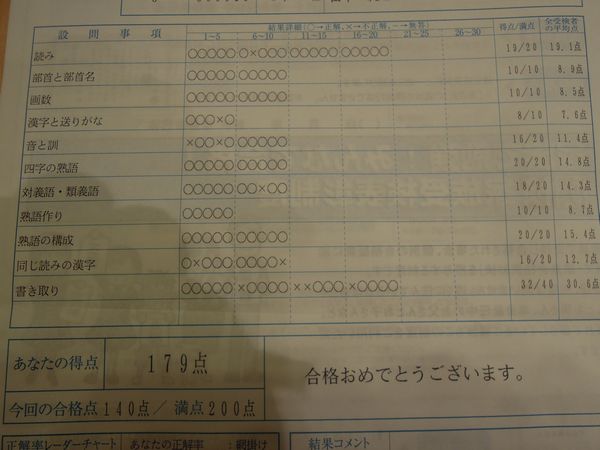 設問事項 結果詳細(○→正解、×→不正解、-→無答) 得点/満点 全受検者の平均点
1~5 6~10 11~15 16~20 21~25 26~30
読み ○○○○○ ○×○○○ ○○○○○ ○○○○○ 19/20 19.1点
部首と部首名 ○○○○○ ○○○○○ 10/10 8.9点
画数 ○○○○○ ○○○○○ 10/10 8.5点
漢字と送りがな ○○○×○ 8/10 7.6点
音と訓 ×○○×○ ○○○○○ 16/20 11.4点
四字の熟語 ○○○○○ ○○○○○ 20/20 14.8点
対義語・類義語 ○○○○○ ○○×○○ 18/20 14.3点
熟語作り ○○○○○ 10/10 8.7点
熟語の構成 ○○○○○ ○○○○○ 20/20 15.4点
同じ読みの漢字 ○×○○○ ○○○○× 16/20 12.7点
書き取り ○○○○○ ×○○○○ ××○○○ ×○○○○ 32/40 30.6点
あなたの得点 179点
合格おめでとうございます。
今回の合格点140点/満点200点
正解率レーダーチャート あなたの正解率 :網掛け 結果コメント